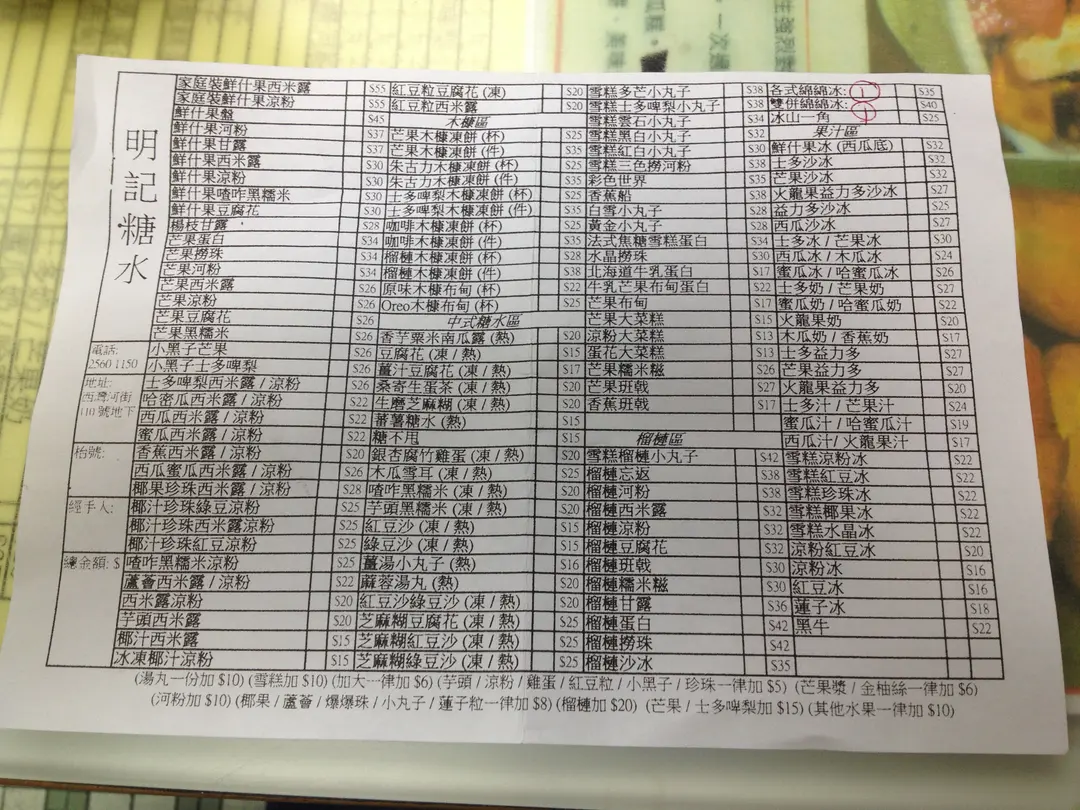 明記糖水
電話:
2560 1150
地址:
西灣河街
110號地下
枱號:
經手人:
總金額: $
家庭裝鮮什果西米露 $55
家庭裝鮮什果涼粉 $55
鮮什果盤 $45
鮮什果河粉 $37
鮮什果甘露 $37
鮮什果西米露 $30
鮮什果涼粉 $30
鮮什果喳咋黑糯米 $30
鮮什果豆腐花 $30
楊枝甘露 $28
芒果蛋白 $34
芒果撈珠 $34
芒果河粉 $34
芒果西米露 $26
芒果涼粉 $26
芒果豆腐花 $26
芒果黑糯米 $26
小黑子芒果 $26
小黑子士多啤梨 $26
士多啤梨西米露 / 涼粉 $26
哈密瓜西米露 / 涼粉 $22
西瓜西米露 / 涼粉 $22
蜜瓜西米露 / 涼粉 $22
香蕉西米露 / 涼粉 $20
西瓜蜜瓜西米露 / 涼粉 $26
椰果珍珠西米露 / 涼粉 $28
椰汁珍珠綠豆涼粉 $25
椰汁珍珠西米露涼粉 $25
椰汁珍珠紅豆涼粉 $25
喳咋黑糯米涼粉 $25
蘆薈西米露 / 涼粉 $22
西米露涼粉 $20
芋頭西米露 $20
椰汁西米露 $15
冰凍椰汁涼粉 $15
紅豆粒豆腐花 (凍) $20
紅豆粒西米露 $20
木糠區
芒果木糠凍餅 (杯) $25
芒果木糠凍餅 (件) $35
朱古力木糠凍餅 (杯) $25
朱古力木糠凍餅 (件) $35
士多啤梨木糠凍餅 (杯) $25
士多啤梨木糠凍餅 (件) $35
咖啡木糠凍餅 (杯) $25
咖啡木糠凍餅 (件) $35
榴槤木糠凍餅 (杯) $28
榴槤木糠凍餅 (件) $38
原味木糠布甸 (杯) $22
Oreo木糠布甸 (杯) $25
中式糖水區
香芋粟米南瓜露 (熱) $20
豆腐花 (凍 / 熱) $15
薑汁豆腐花 (凍 / 熱) $17
桑寄生蛋茶 (凍 / 熱) $20
生磨芝麻糊 (凍 / 熱) $20
蕃薯糖水 (熱) $15
糖不甩 $15
銀杏腐竹雞蛋 (凍 / 熱) $20
木瓜雪耳 (凍 / 熱) $25
喳咋黑糯米 (凍 / 熱) $20
芋頭黑糯米 (凍 / 熱) $20
紅豆沙 (凍 / 熱) $15
綠豆沙 (凍 / 熱) $15
薑湯小丸子 (熱) $16
麻蓉湯丸 (熱) $20
紅豆沙綠豆沙 (凍 / 熱) $20
芝麻糊豆腐花 (凍 / 熱) $25
芝麻糊紅豆沙 (凍 / 熱) $25
芝麻糊綠豆沙 (凍 / 熱) $25
雪糕多芒小丸子 $38
雪糕士多啤梨小丸子 $38
雪糕雲石小丸子 $34
雪糕黑白小丸子 $32
雪糕紅白小丸子 $30
雪糕三色撈河粉 $38
彩色世界 $35
香蕉船 $38
白雪小丸子 $28
黃金小丸子 $28
法式焦糖雪糕蛋白 $34
水晶撈珠 $30
北海道牛乳蛋白 $17
牛乳芒果布甸蛋白 $22
芒果布甸 $17
芒果大菜糕 $15
涼粉大菜糕 $13
蛋花大菜糕 $13
芒果糯米糍 $26
芒果班戟 $27
香蕉班戟 $17
榴槤區
雪糕榴槤小丸子 $42
榴槤忘返 $38
榴槤河粉 $38
榴槤西米露 $32
榴槤涼粉 $32
榴槤豆腐花 $32
榴槤班戟 $30
榴槤糯米糍 $30
榴槤甘露 $36
榴槤蛋白 $42
榴槤撈珠 $42
榴槤沙冰 $35
各式綿綿冰: $35
雙併綿綿冰: $40
冰山一角 $25
果汁區
鮮什果冰 (西瓜底) $32
士多沙冰 $32
芒果沙冰 $27
火龍果益力多沙冰 $27
益力多沙冰 $25
西瓜沙冰 $27
士多冰 / 芒果冰 $30
西瓜冰 / 木瓜冰 $24
蜜瓜冰 / 哈蜜瓜冰 $26
士多奶 / 芒果奶 $27
蜜瓜奶 / 哈蜜瓜奶 $22
火龍果奶 $20
木瓜奶 / 香蕉奶 $17
士多益力多 $17
芒果益力多 $20
火龍果益力多 $20
士多汁 / 芒果汁 $24
蜜瓜汁 / 哈蜜瓜汁 $19
西瓜汁 / 火龍果汁 $17
雪糕涼粉冰 $22
雪糕紅豆冰 $22
雪糕珍珠冰 $22
雪糕椰果冰 $22
雪糕水晶冰 $22
涼粉紅豆冰 $20
涼粉冰 $16
紅豆冰 $16
蓮子冰 $18
黑牛 $22
(湯丸一份加 $10) (雪糕加 $10) (加大一律加 $6) (芋頭 / 涼粉 / 雞蛋 / 紅豆粒 / 小黑子 / 珍珠一律加 $5) (芒果漿 / 金柚絲一律加 $6)
(河粉加 $10) (椰果 / 蘆薈 / 爆爆珠 / 小丸子 / 蓮子粒一律加 $8) (榴槤加 $20) (芒果 / 士多啤梨加 $15) (其他水果一律加 $10)